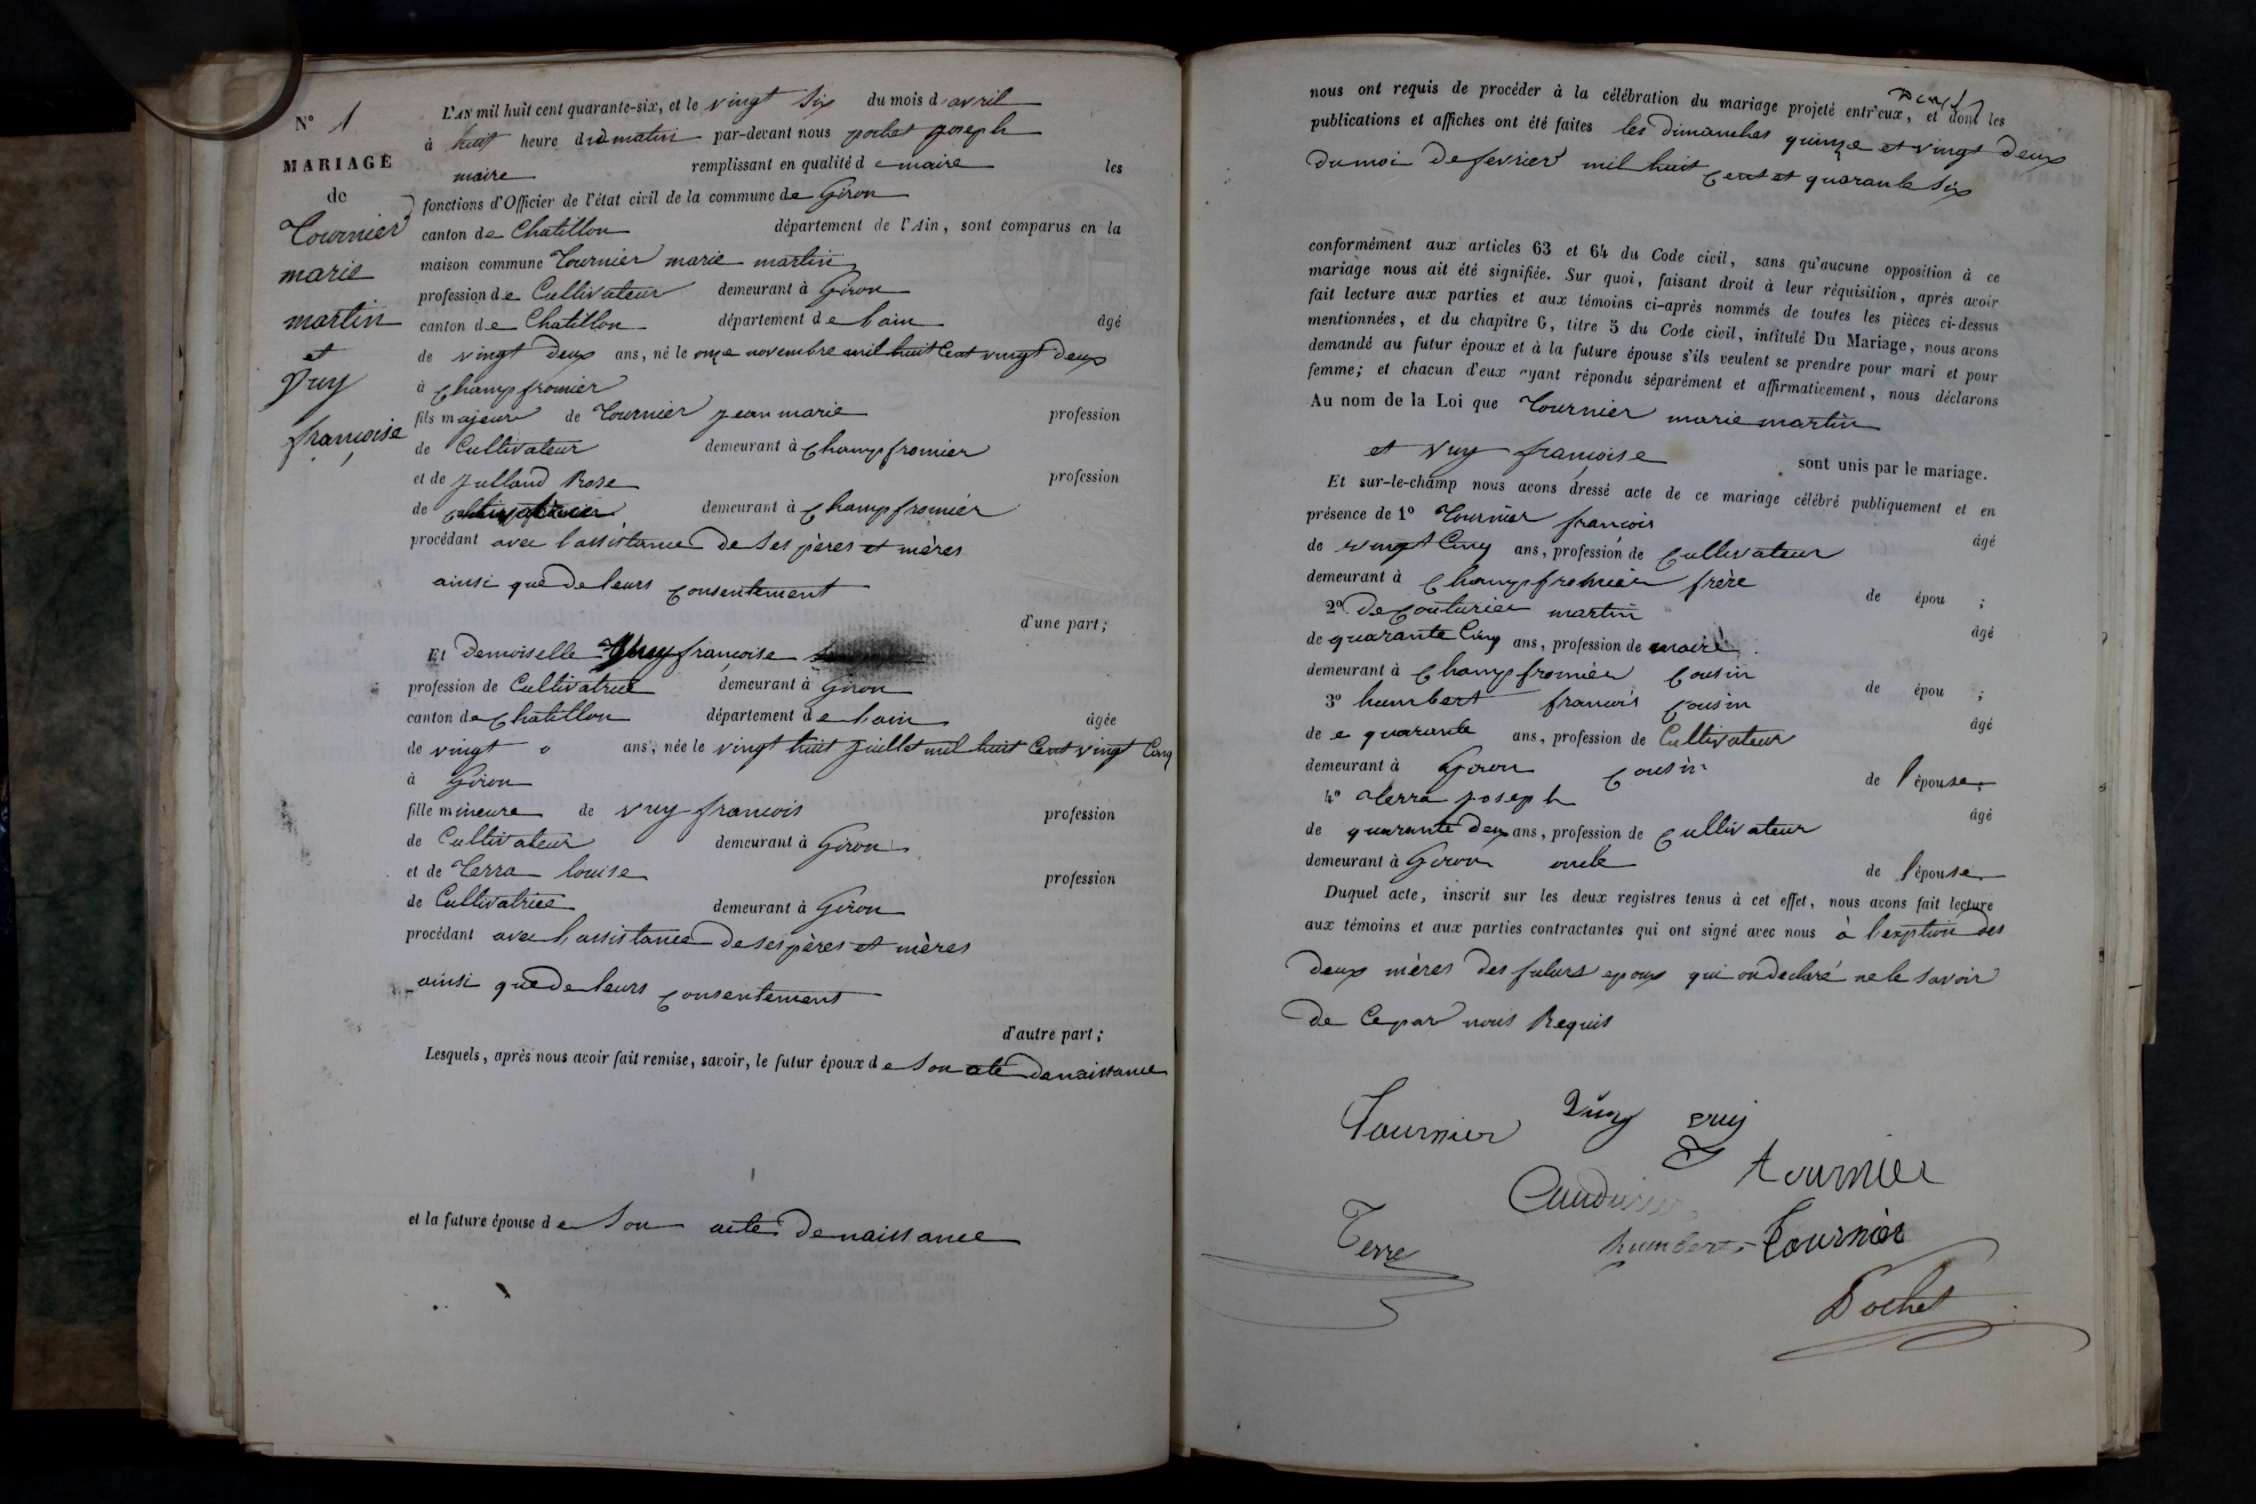 N° 1
MARIAGE
de
Tournier
marie
martin
et
Vuy
françoise
L'AN mil huit cent quarante-six, et le vingt six du mois d'avril
à huit heure du matin par-devant nous pochet joseph
maire remplissant en qualité de maire les
fonctions d'Officier de l'état civil de la commune de Giron
canton de Chatillon département de l'Ain, sont comparus en la
maison commune Tournier marie martin
profession de Cultivateur demeurant à Giron
canton de Chatillon département de l'ain âgé
de vingt deux ans, né le onze novembre mil huit Cent vingt deux
à Champfromier
fils majeur de Tournier jean marie profession
de Cultivateur demeurant à Champfromier
et de julland Rose profession
de demeurant à Champfromier
procédant avec l'assistance de ses pères et mères
ainsi que de leurs consentement
d'une part;
Et Demoiselle Vuy françoise
profession de Cultivatrice demeurant à Giron
canton de Chatillon département de l'ain âgée
de vingt ans, née le vingt huit juillet mil huit Cent vingt Cinq
à Giron
fille mineure de vuy francois profession
de Cultivateur demeurant à Giron
et de Terra louise profession
de Cultivatrice demeurant à Giron
procédant avec l'assistance de ses pères et mères
ainsi que de leurs consentement
d'autre part;
Lesquels, après nous avoir fait remise, savoir, le futur époux de son ate de naissance
et la future épouse de son acte de naissance
nous ont requis de procéder à la célébration du mariage projeté entr'eux, et dont les
publications et affiches ont été faites les dimanches quinze et vingt deux
du moi de fevrier mil huit cent et quarante six
conformément aux articles 63 et 64 du Code civil, sans qu'aucune opposition à ce
mariage nous ait été signifiée. Sur quoi, faisant droit à leur réquisition, après avoir
fait lecture aux parties et aux témoins ci-après nommés de toutes les pièces ci-dessus
mentionnées, et du chapitre 6, titre 5 du Code civil, intitulé Du Mariage, nous avons
demandé au futur époux et à la future épouse s'ils veulent se prendre pour mari et pour
femme; et chacun d'eux ayant répondu séparément et affirmativement, nous déclarons
Au nom de la Loi que Tournier marie martin
et vuy françoise sont unis par le mariage.
Et sur-le-champ nous avons dressé acte de ce mariage célébré publiquement et en
présence de 1° Tournier francois âgé
de vingt Cinq ans, profession de Cultivateur
demeurant à Champfromier frère de épou ;
2° Decouturier martin âgé
de quarante Cinq ans, profession de maire
demeurant à Champfromier cousin de épou ;
3° humbert francois cousin âgé
de quarante ans, profession de Cultivateur
demeurant à Giron cousin de l'épouse;
4° Terra joseph âgé
de quarante deux ans, profession de Cultivateur
demeurant à Giron oncle de l'épouse
Duquel acte, inscrit sur les deux registres tenus à cet effet, nous avons fait lecture
aux témoins et aux parties contractantes qui ont signé avec nous à l'exption des
deux mères des futurs epoux qui on declaré ne le savoir
de Ce par nous Requis
Tournier vuy vuy
tournier
Terre humbert Tournier
Pochet